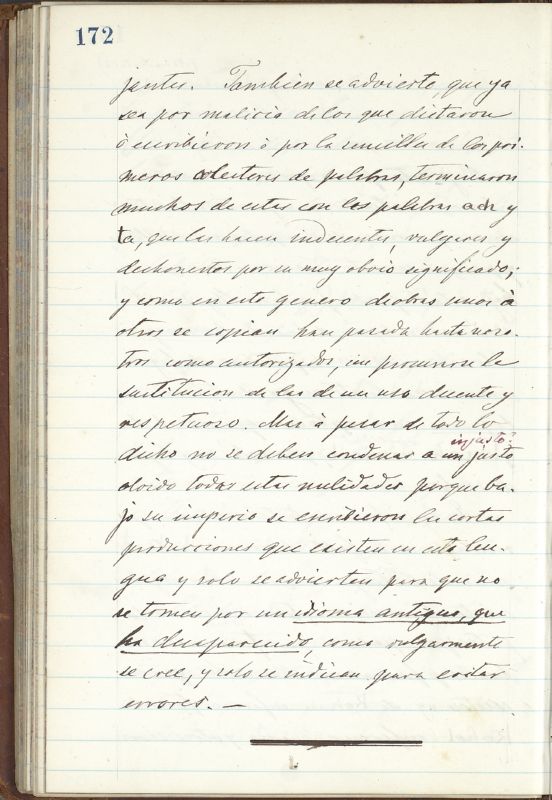 172
jantes. Tambien se advierte, que ya
sea por malicia de los que dictaron
ò escribieron ò por la sencillez de los pri-
meros colectores de palabras, terminaron
muchos de estas con las palabras ach y
ta, que las hacen indecentes, vulgares y
deshonestos por su muy obvio significado;
y como en este genero de obras unos à
otros se copian han pasado hasta noso-
tros como autorizados, sin procurarse la
sustitucion de las de un uso decente y
respetuoso. Mas à pesar de todo lo
injusto?
dicho no se deben condenar a un justo
olvido todas estas nulidades porque ba-
jo su imperio se escribieron las cortas
producciones que existen en esta len-
gua y solo se advierten para que no
se tomen por un idioma antiguo, que
ha desaparecido, como vulgarmente
se cree, y solo se indican para evitar
errores. —